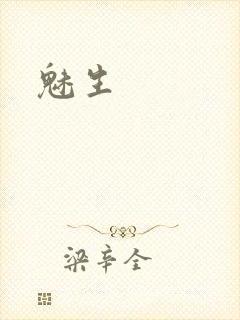 魅生
梁辛全